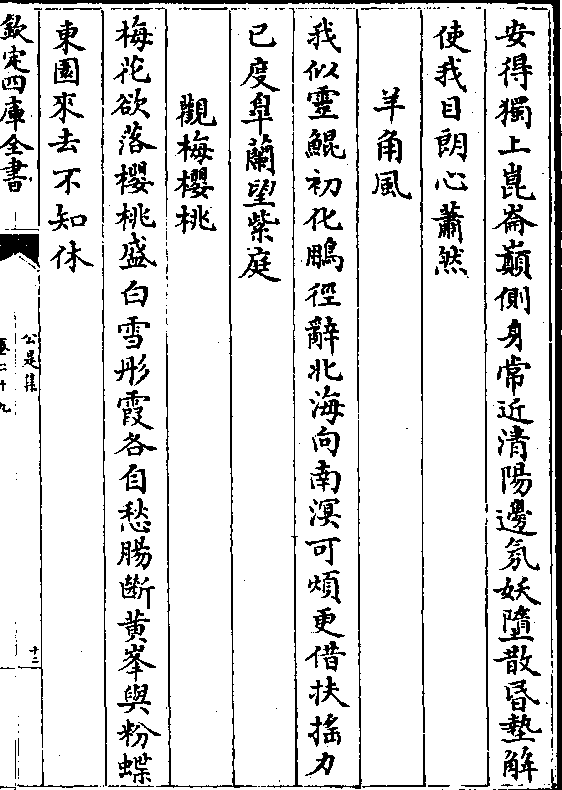 安得獨上崑崙巔側身常近清陽邊氛妖墮散昏墊解
使我目朗心蕭然
羊角風
我似靈鯤初化鵬徑辭北海向南溟可煩更借扶揺力
已度臯蘭望紫庭
觀梅櫻桃
梅花欲落櫻桃盛白雪彤霞各自愁腸斷黄峯與粉蝶
東園來去不知休
欽定四庫全書
公是集
卷二十九
十三